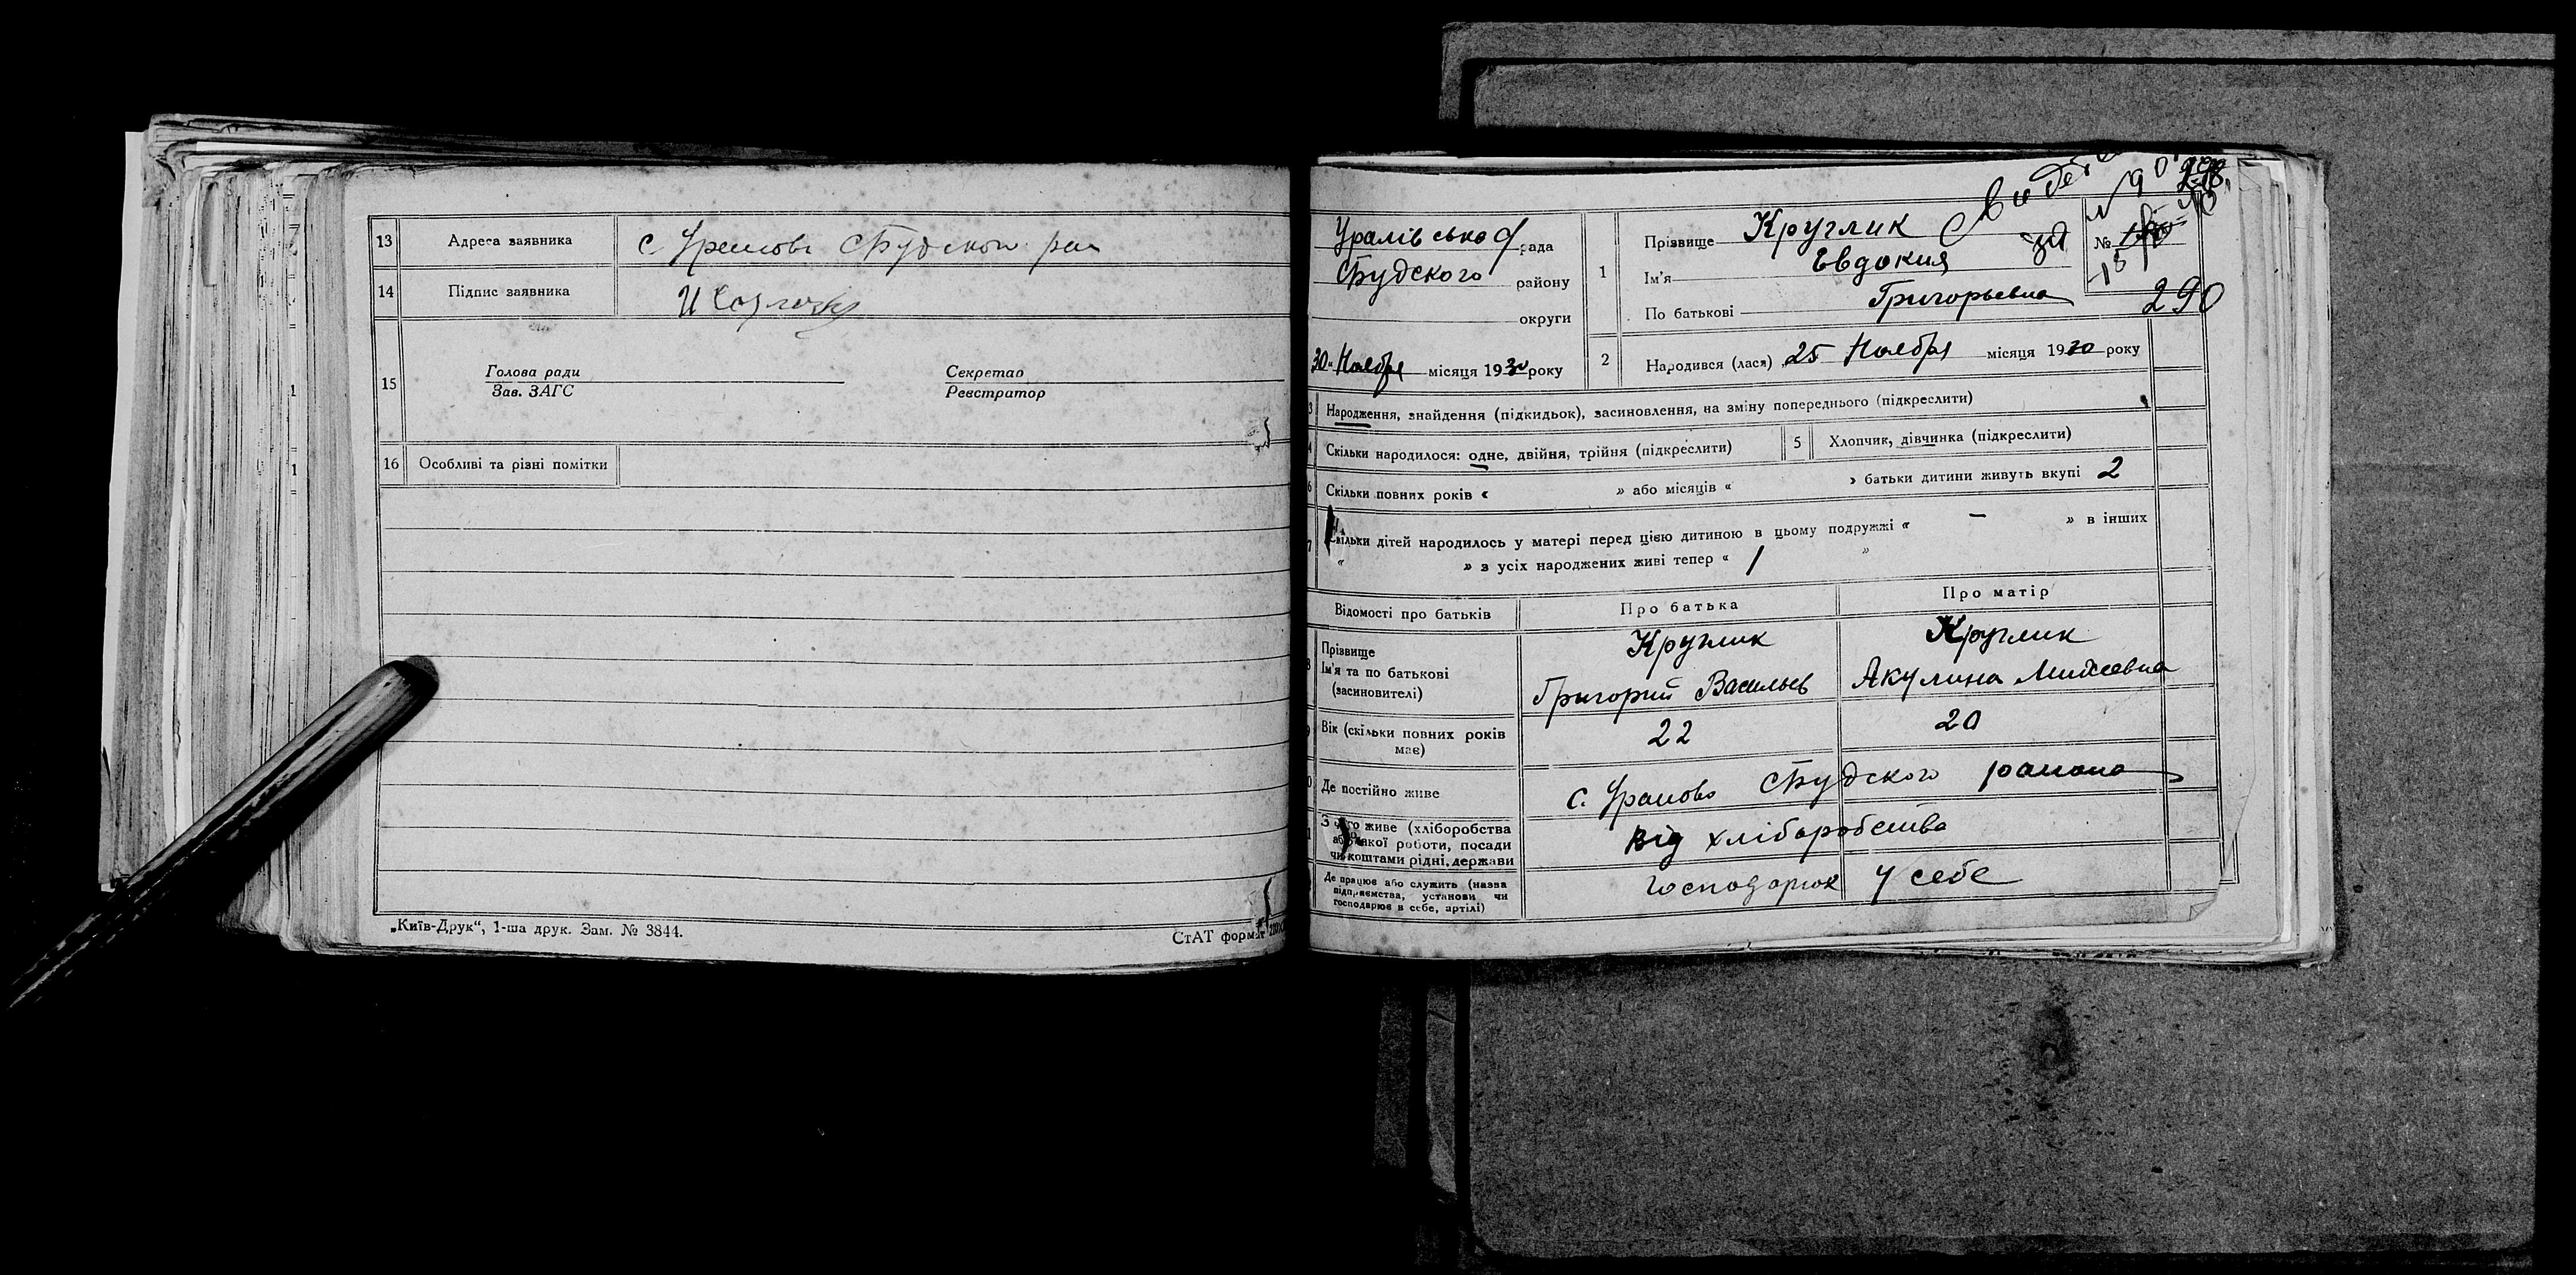 13 Адреса заявника с.
14 Підпис заявника И
15 Голова ради Секретар
Зав. ЗАГС Реєстратор
16 Особливі та різні помітки
„Київ-Друк“, 1-ша друк. Зам. № 3844.
СтАТ формат
рада
СБудского району
округи
30 Ноября місяця 1930 року
1 Прізвище Круглик
Ім'я Евдокия
По батькові Григорьевна
№
290
2 Народився (лася) „25 Ноября місяця 1930 року
3 Народження, знайдення (підкидьок), засиновлення, на зміну попереднього (підкреслити)
Скільки народилося: одне, двійня, трійня (підкреслити)
5 Хлопчик, дівчинка (підкреслити)
6 Скільки повних років « » або місяців « » батьки дитини живуть вкупі 2
7 Скільки дітей народилось у матері перед цією дитиною в цьому подружжі « — » в інших
« » з усіх народжених живі тепер « 1 »
Відомості про батьків Про батька Про матір
Прізвище Круглик Круглик
Ім'я та по батькові Григорий Васильев Акулина
(засиновителі)
Вік (скільки повних років має) 22 20
Де постійно живе с. СБудского района
З чого живе (хліборобства
або якої роботи, посади
чи коштами рідні, держави від хліборобства
Де працює або служить (назва
підприємства, установи чи
господарює в себе, артілі) у себе